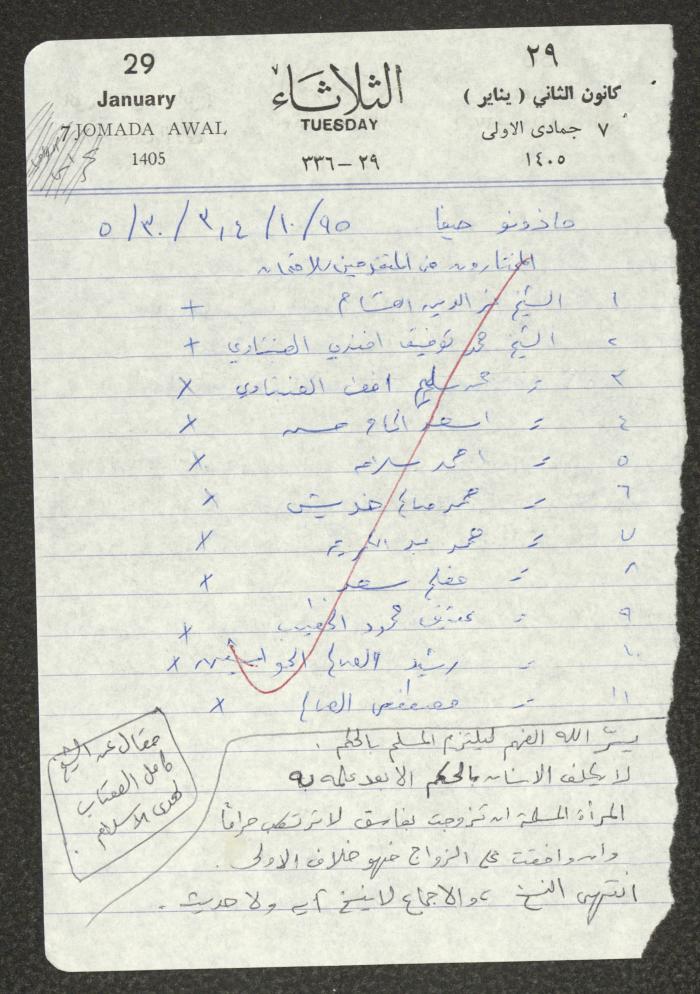 29
January
7 JOMADA AWAL
1405
الثلاثاء
TUESDAY
٢٩-٣٣٦
٢٩
كانون الثاني ( يناير )
٧ جمادى الاولى
١٤٠٥
ماذونو حيفا ٩٥/١٠/٣,٤/٣٠/٥
المختارون من المتقدمين للامتحان
١ الشيخ عز الدين القسام +
٢ الشيخ محمد توفيق افندي العنبتاوي +
٣ = محمد سليم افندي العنبتاوي x
٤ = اسعد الحاج حسن x
٥ = احمد سلامه x
٦ = محمد صالح x
٧ = محمد عبد x
٨ = مفلح سعد x
٩ = محمود الخطيب x
١٠ = رشيد الصالح x
١١ = مصطفى الصالح x
يسّر الله الفهم ليلتزم المسلم بالحكم .
لا يكلف الانسان بالحكم الا بعد علمه به
المرأة المسلمة ان تزوجت بفاسق لا ترتكب حراماً
وان وافقت على الزواج فهو خلاف الاولى .
انتهى النسخ ، والاجماع لا ينسخ آيه ولا حديث .
مقال عن الشيخ
كامل القصاب
لهدى الاسلام .